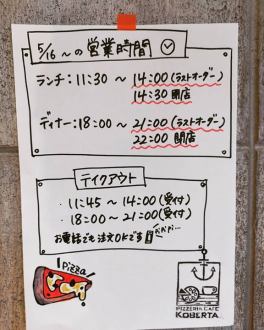 5/16～の営業時間
ランチ：11:30 ～ 14:00（ラストオーダー）
14:30 閉店
ディナー：18:00 ～ 21:00（ラストオーダー）
22:00 閉店
テイクアウト
・11:45 ～ 14:00（受付）
・18:00 ～ 21:00（受付）
お電話でも注文OKです
Pizza
PIZZERIA CAFE
KOBERTA